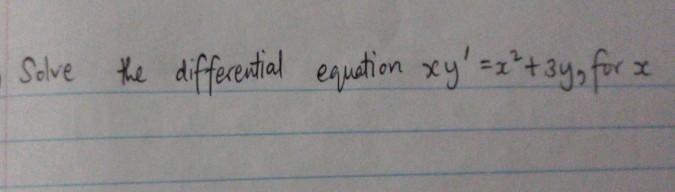 Solve the differential equation xy' = x² + 3y, for x